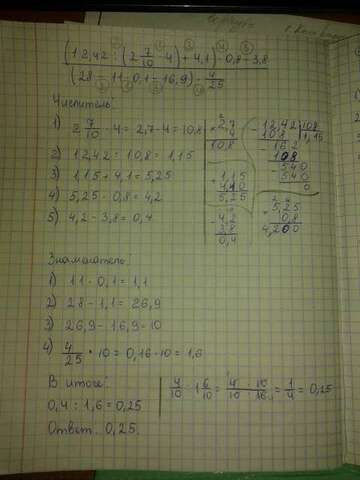 (12,42 : (2 7/10 · 4) + 4,1) · 0,8 - 3,8
(28 - 11 · 0,1 - 16,9) · 4/25
Числитель:
1) 2 7/10 · 4 = 2,7 · 4 = 10,8
2) 12,42 : 10,8 = 1,15
3) 1,15 + 4,1 = 5,25
4) 5,25 · 0,8 = 4,2
5) 4,2 - 3,8 = 0,4
2,7
4
10,8
1,15
4,10
5,25
4,2
3,8
0,4
12,42 | 108
108 | 1,15
162
108
540
540
0
5,25
0,8
4,200
Знаменатель:
1) 11 · 0,1 = 1,1
2) 28 - 1,1 = 26,9
3) 26,9 - 16,9 = 10
4) 4/25 · 10 = 0,16 · 10 = 1,6
В итоге:
0,4 : 1,6 = 0,25
Ответ. 0,25.
4/10 : 1 6/10 = 4 · 10/10 · 16 = 1/4 = 0,25